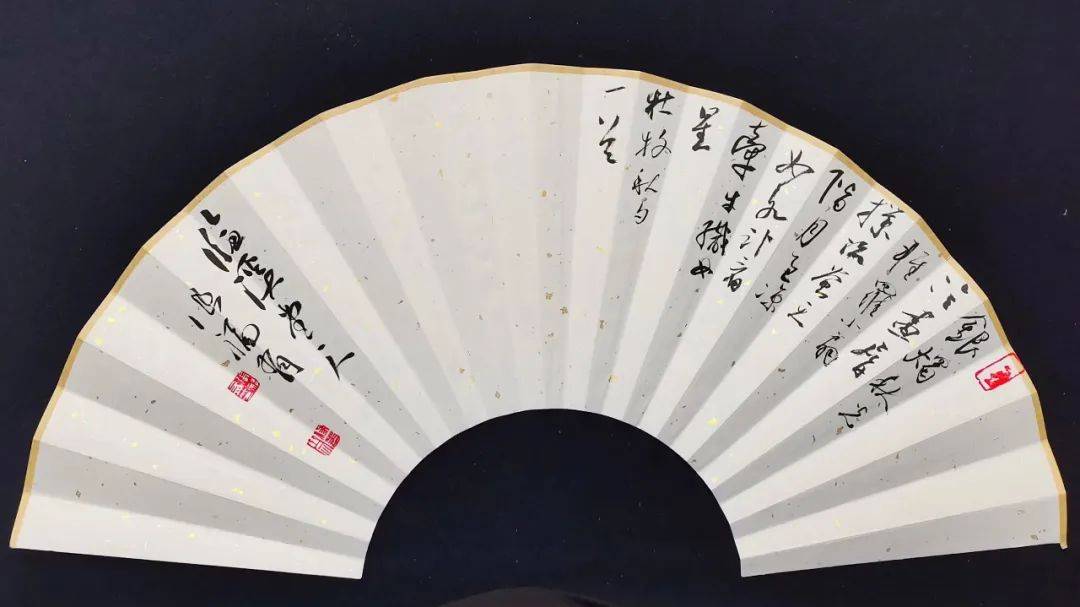 銀燭秋光
冷畫屏
輕羅小扇
撲流螢天
階月色涼
如水卧看
牽牛織女
星
杜牧秋夕
一首
臨溪堂主